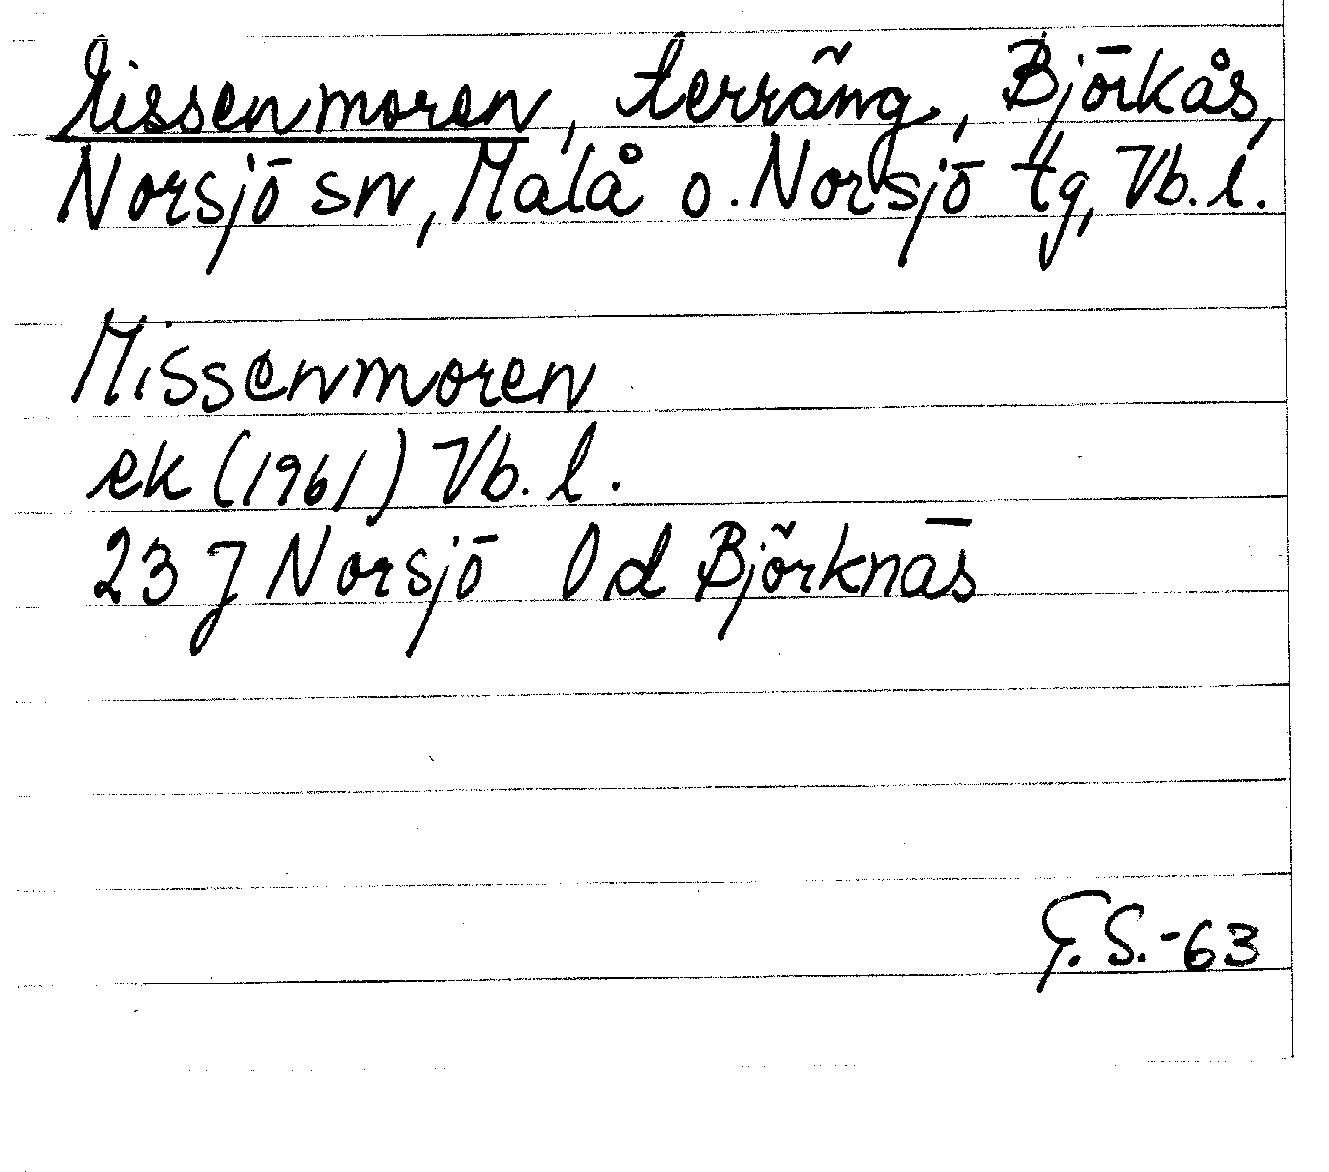 Missenmoren, terräng, Björkås,
Norsjö sn, Malå o. Norsjö tg, Vb. l.
Missenmoren
ek (1961) Vb. l.
23 J Norsjö 0 d Björknäs
G. S. -63